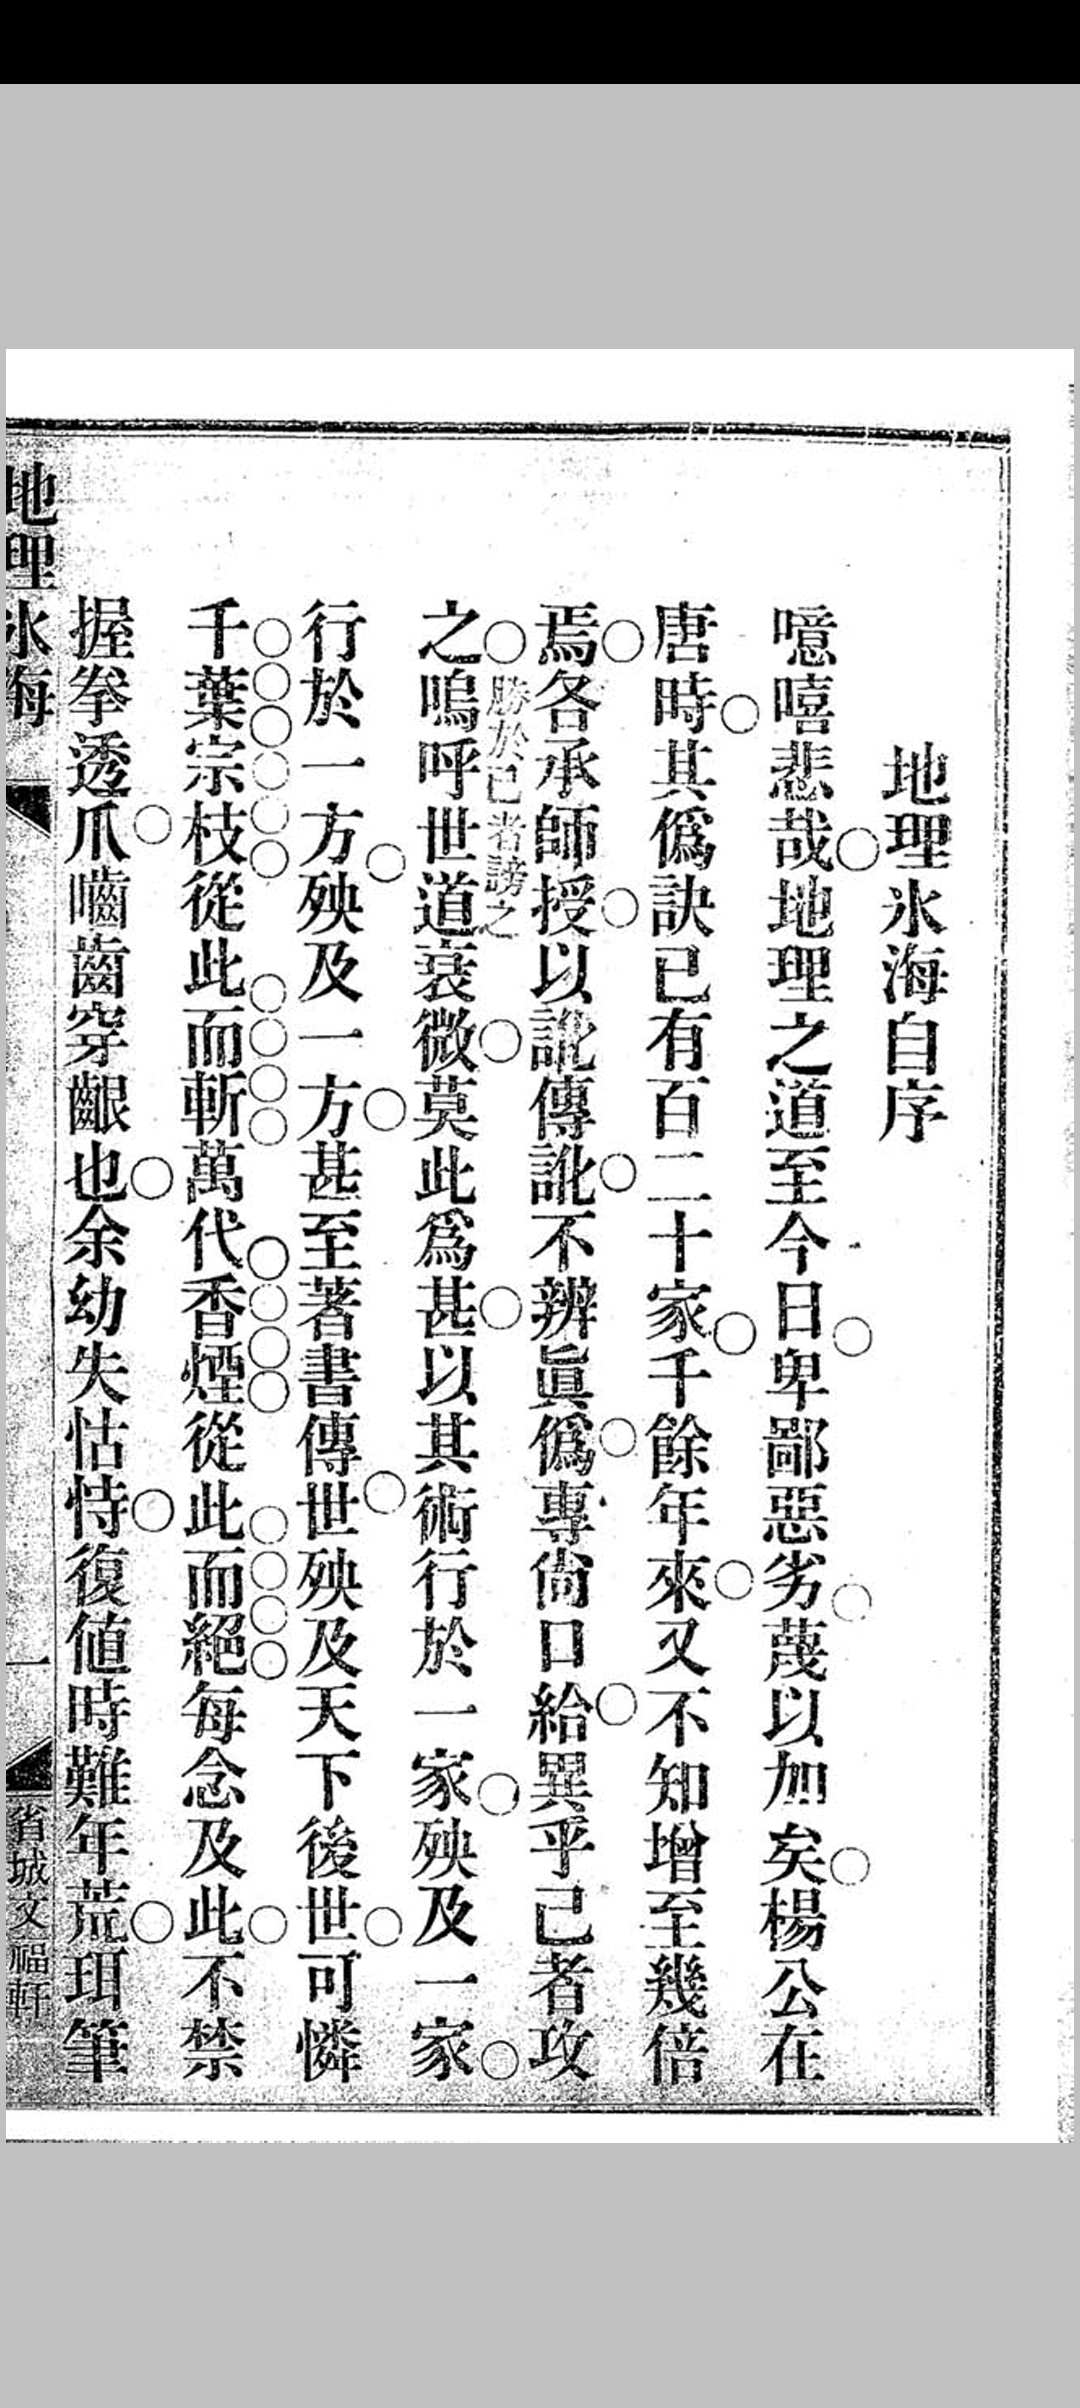 地理氷海自序
噫嘻悲哉地理之道至今日卑鄙惡劣蔑以加矣楊公在
唐時其僞訣已有百二十家千餘年來又不知增至幾倍
焉各承師授以訛傳訛不辨眞僞專尙口給異乎己者攻
勝於己者謗之
之嗚呼世道衰微莫此爲甚以其術行於一家殃及一家
行於一方殃及一方甚至著書傳世殃及天下後世可憐
千葉宗枝從此而斬萬代香煙從此而絕每念及此不禁
握拳透爪嚙齒穿齦也余幼失怙恃復値時難年荒珥筆
地理氷海
一
省城文福軒